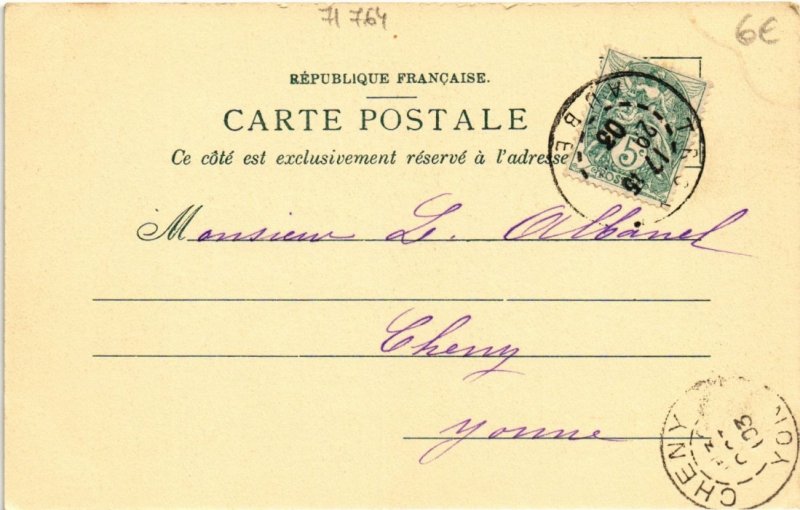 71 764
6€
RÉPUBLIQUE FRANÇAISE.
CARTE POSTALE
Ce côté est exclusivement réservé à l'adresse
5
AUBE
03
Monsieur L. Albanel
Cheny
Yonne
CHENY
03